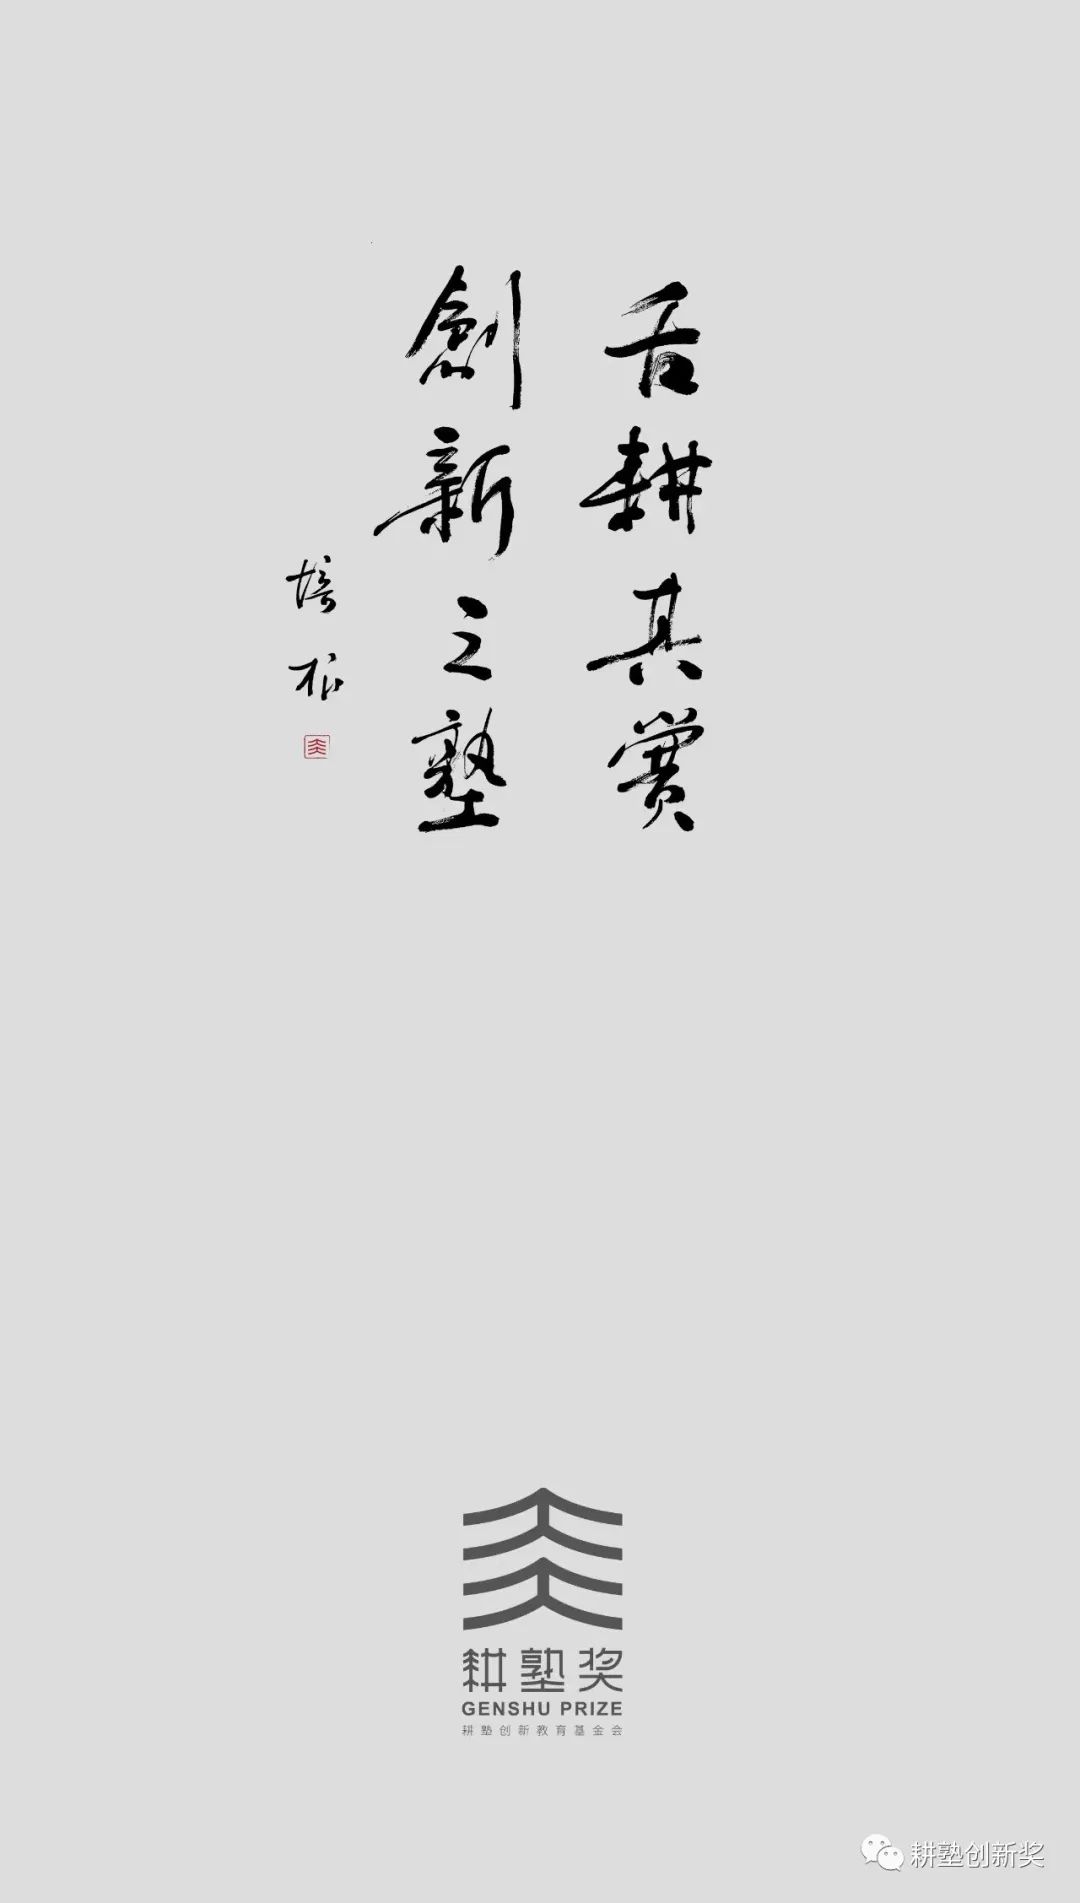 舌耕其賞
創新之塾
培根
耕塾奖
GENSHU PRIZE
耕塾创新教育基金会
耕塾创新奖